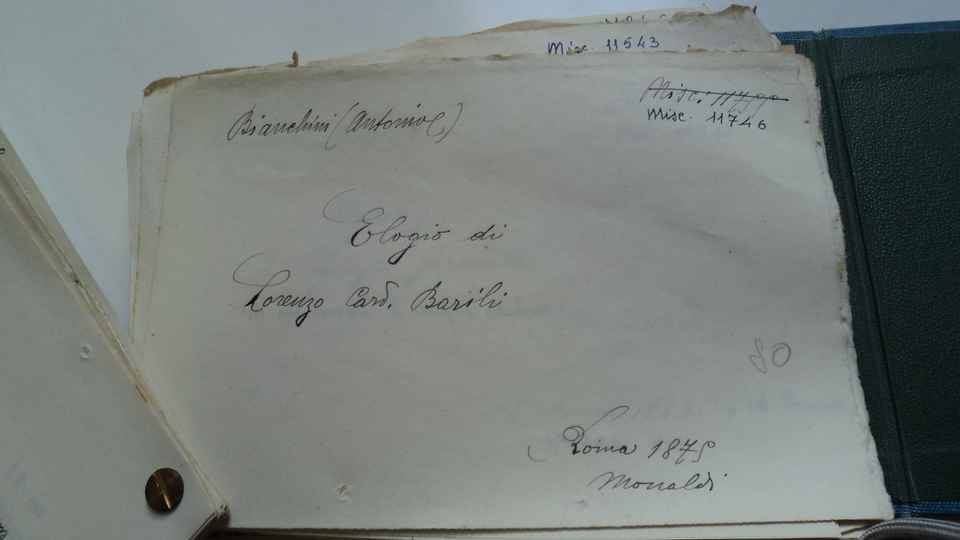 Misc. 11543
Misc.
Misc. 11746
Bianchini (Antonio)
Elogio di
Lorenzo Card. Barili
80
Roma 1875
Monaldi